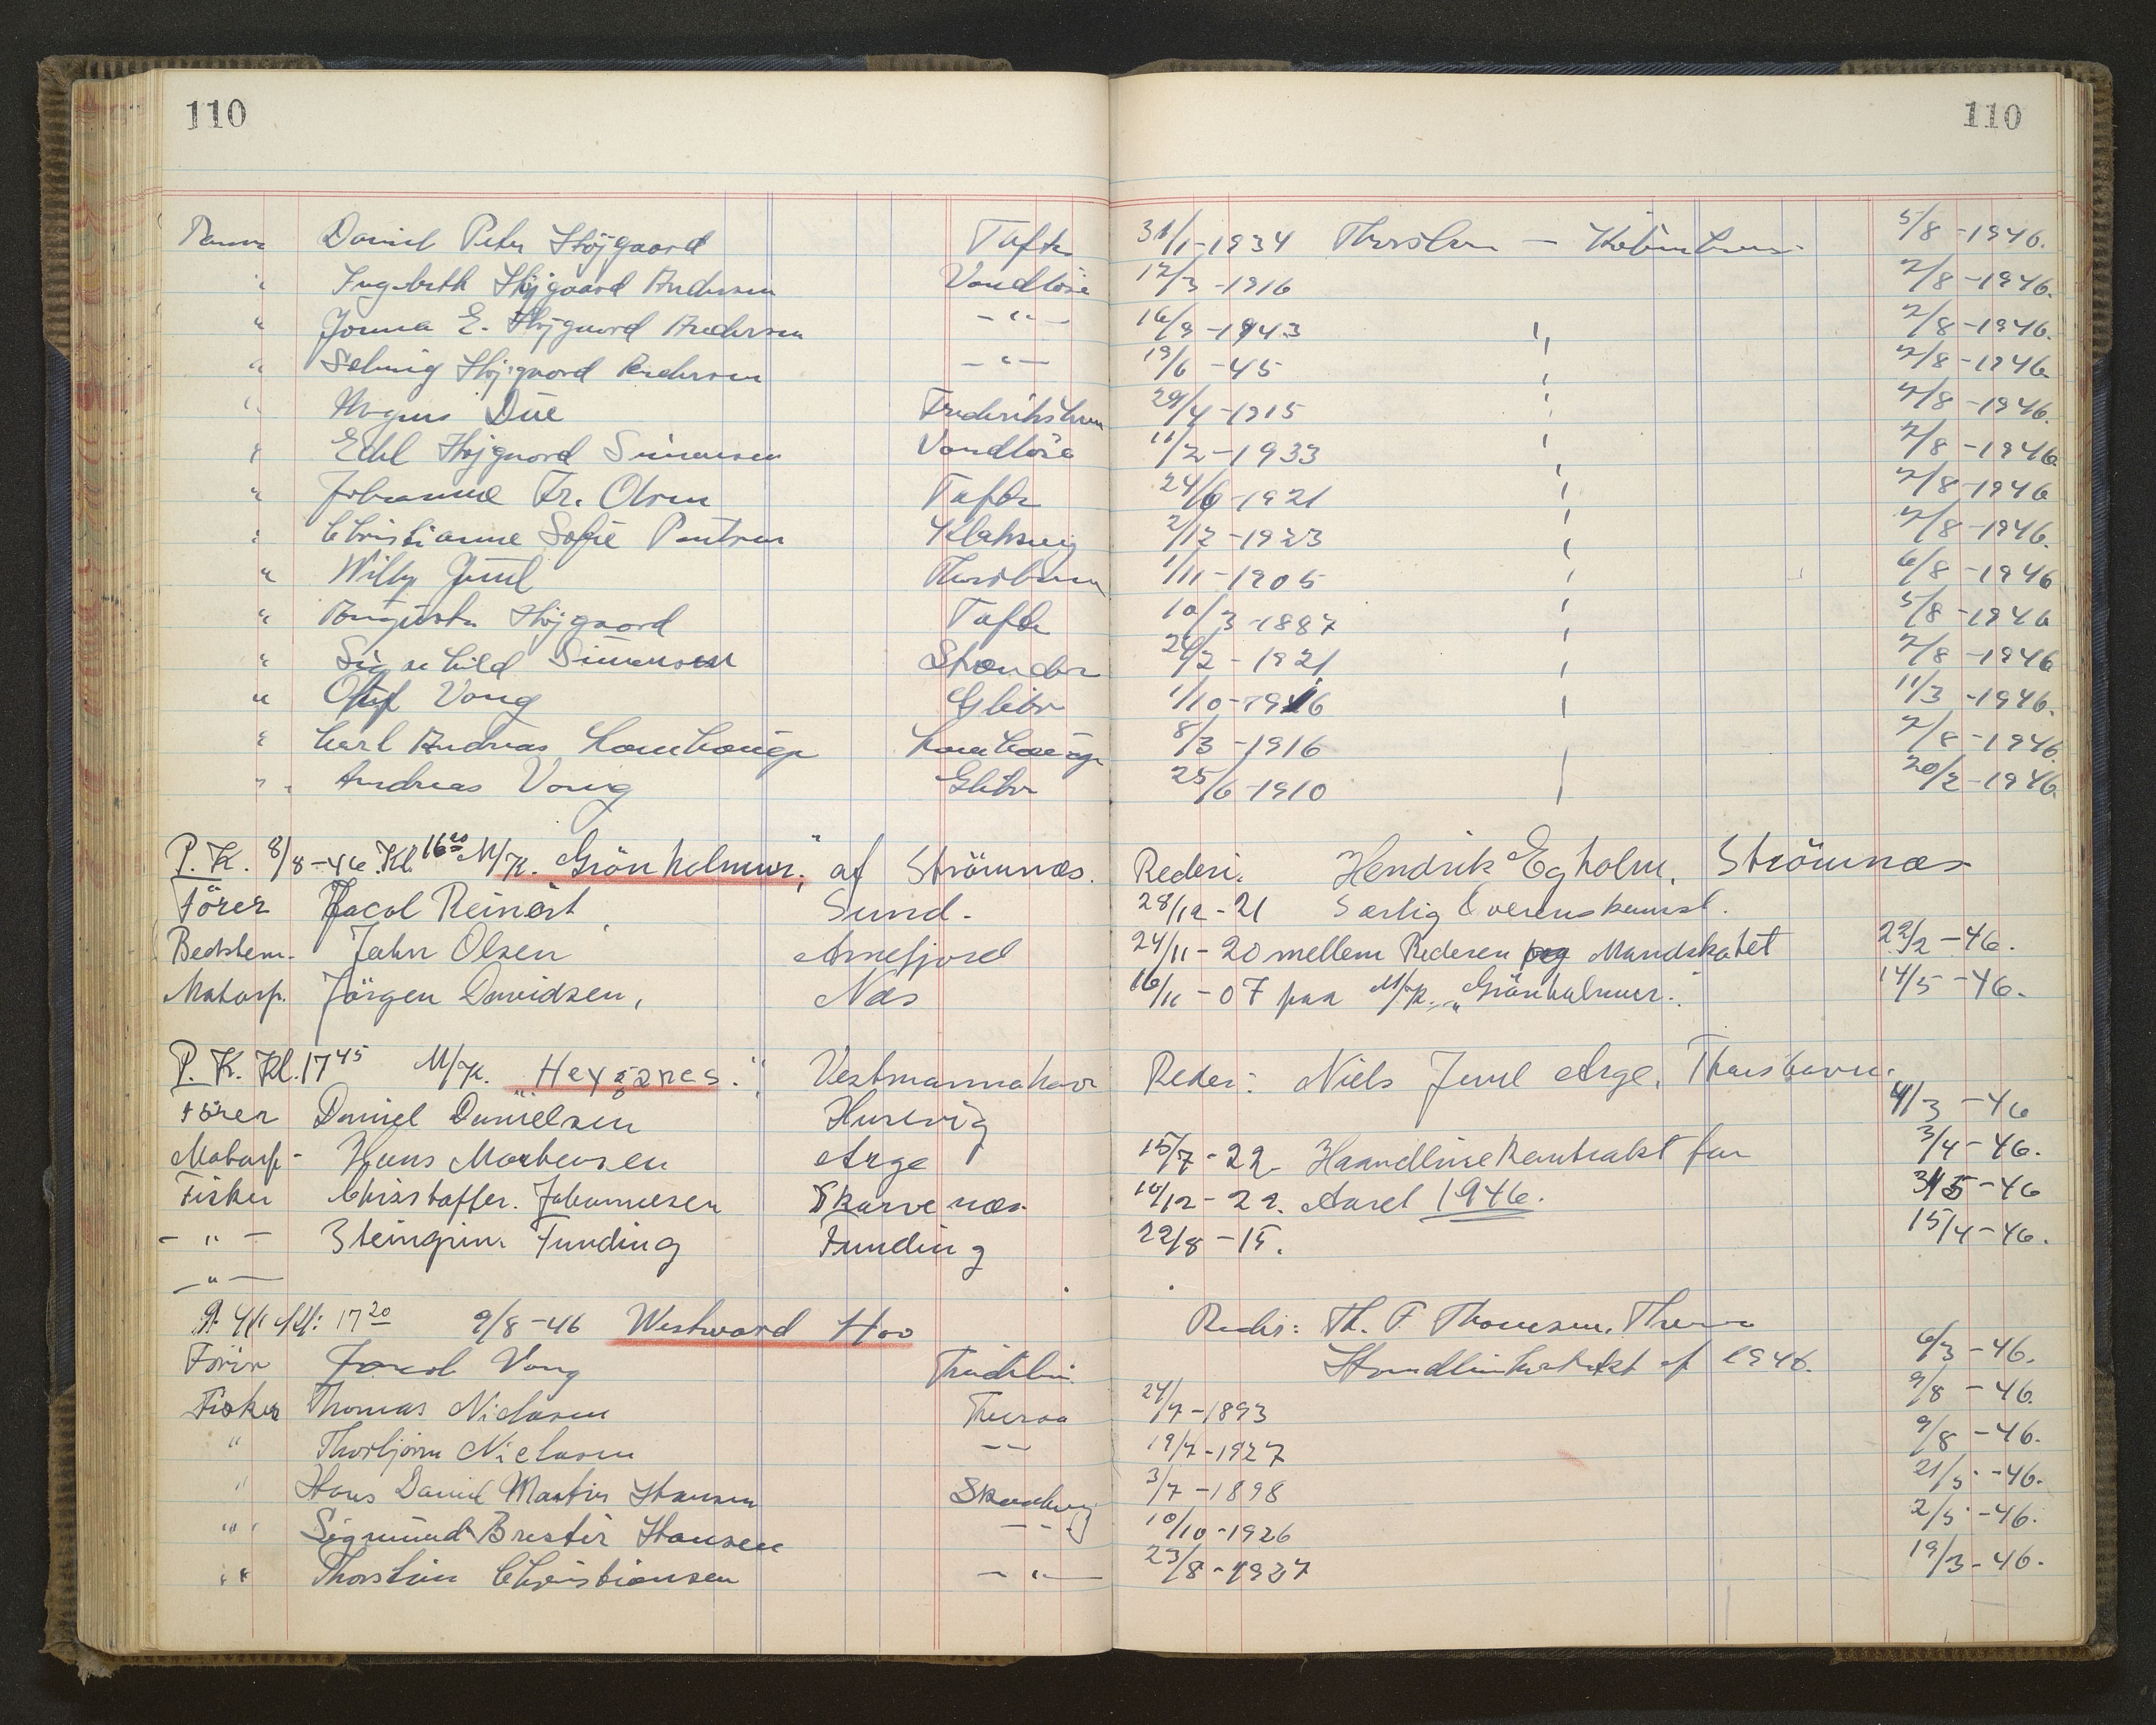 110 110
Daniel Peter Höjgaard Tafte 31/1-1934 Thorshavn — 5/8-1946.
" Ingebeth Höjgaard Andersen Vandløse 12/3-1916 7/8-1946.
" Jonna E. Höjgaard Andersen -"- 16/9-1943 " 7/8-1946.
" Solveig Höjgaard Andersen -"- 19/6-45 " 7/8-1946.
" Mogens Due Frederikshavn 29/4-1915 " 7/8-1946.
" Höjgaard Simonsen Vandløse 11/2-1933 " 7/8-1946
" Johanne Fr. Olsen Tafte 24/6-1921 " 7/8-1946
" Christianne Sofie Poulsen Klaksvig 2/12-1923 " 7/8-1946.
" Willy Juul Thorshavn 1/11-1905 " 6/8-1946
" Augusta Höjgaard Tafte 10/3-1887 " 5/8-1946
" Signhild Simonsen 24/2-1921 " 7/8-1946
" Oluf Vang Glibr 1/10-1916 " 11/3-1946.
" Carl Andreas Lambhauge Lambhauge 8/3-1916 " 7/8-1946.
" Andreas Vang Glibr 25/6-1910 " 20/2-1946.
P. K. 8/8-46 Kl. 16 20 M/K. "Grönholmur", af Strömnæs. Rederi: Hendrik Egholm, Strömnæs
Förer Jacob Reinert Sund. 28/12-21 Særlig Overenskomst.
Bedstem. John Olsen Arnefjord 24/11-20 mellem Rederen og Mandskabet 22/2-46.
Motorp. Jörgen Davidsen, Næs 16/11-07 paa M/K. "Grönholmur". 14/5-46.
P. K. Kl. 17 45 M/K. "Heyganes". Vestmannahavn Reder: Niels Juul Arge, Thorshavn.
Förer Daniel Danielsen Husevig 4/3-46
Motorp- Hans Mortensen Arge 15/7-22. Haandlinekontrakt for 3/4-46.
Fisker Christoffer. Johannesen Skarvenæs 10/12-22. Aaret 1946. 3/5-46
-"- Steingrim Funding Funding 22/8-15. 15/4-46.
-"-
P. K. Kl: 17 20 9/8-46 Westward Hoo Reder: Th. F Thomsen, Tveraa
Förer Jacob Vang Haandlinkontrakt af 1946. 6/3-46.
Fisker Thomas Niclasen Tveraa 24/7-1893 9/8-46.
" Thorbjørn Niclasen -"- 19/7-1927 9/8-46.
" Hans Daniel Martin Hansen 3/7-1898 21/5-46.
" Sigmund Brestir Hansen -"- 10/10-1926 2/5-46.
" Thorstein Christiansen -"- 23/8-1927 19/3-46.